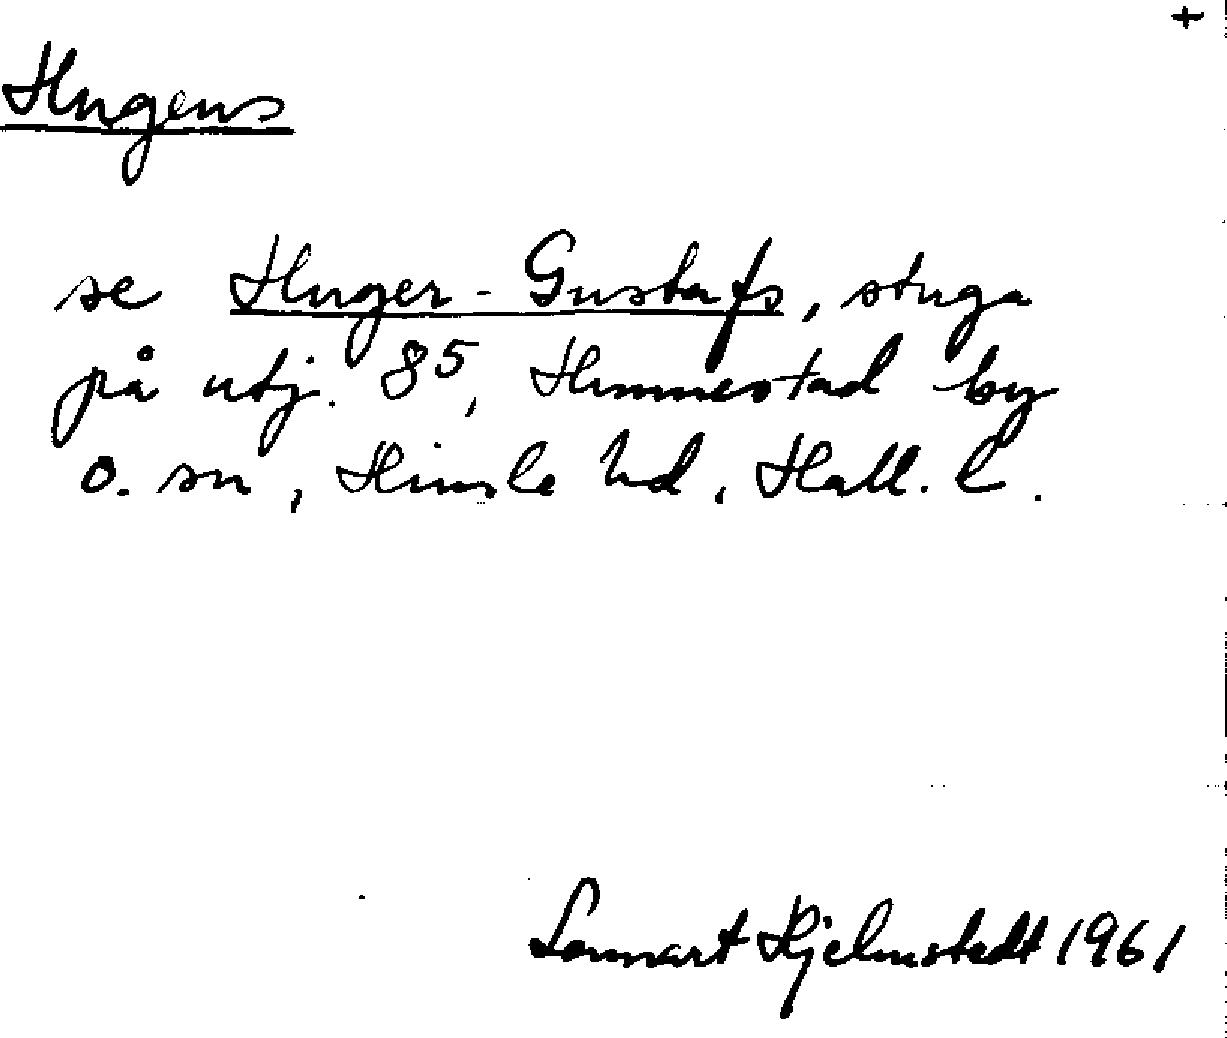 +
Hugens
se Huger-Gustafs, stuga
på utj. 85, Himmestad by
o. sn, Himle hd, Hall. l.
Lennart Hjelmstedt 1961